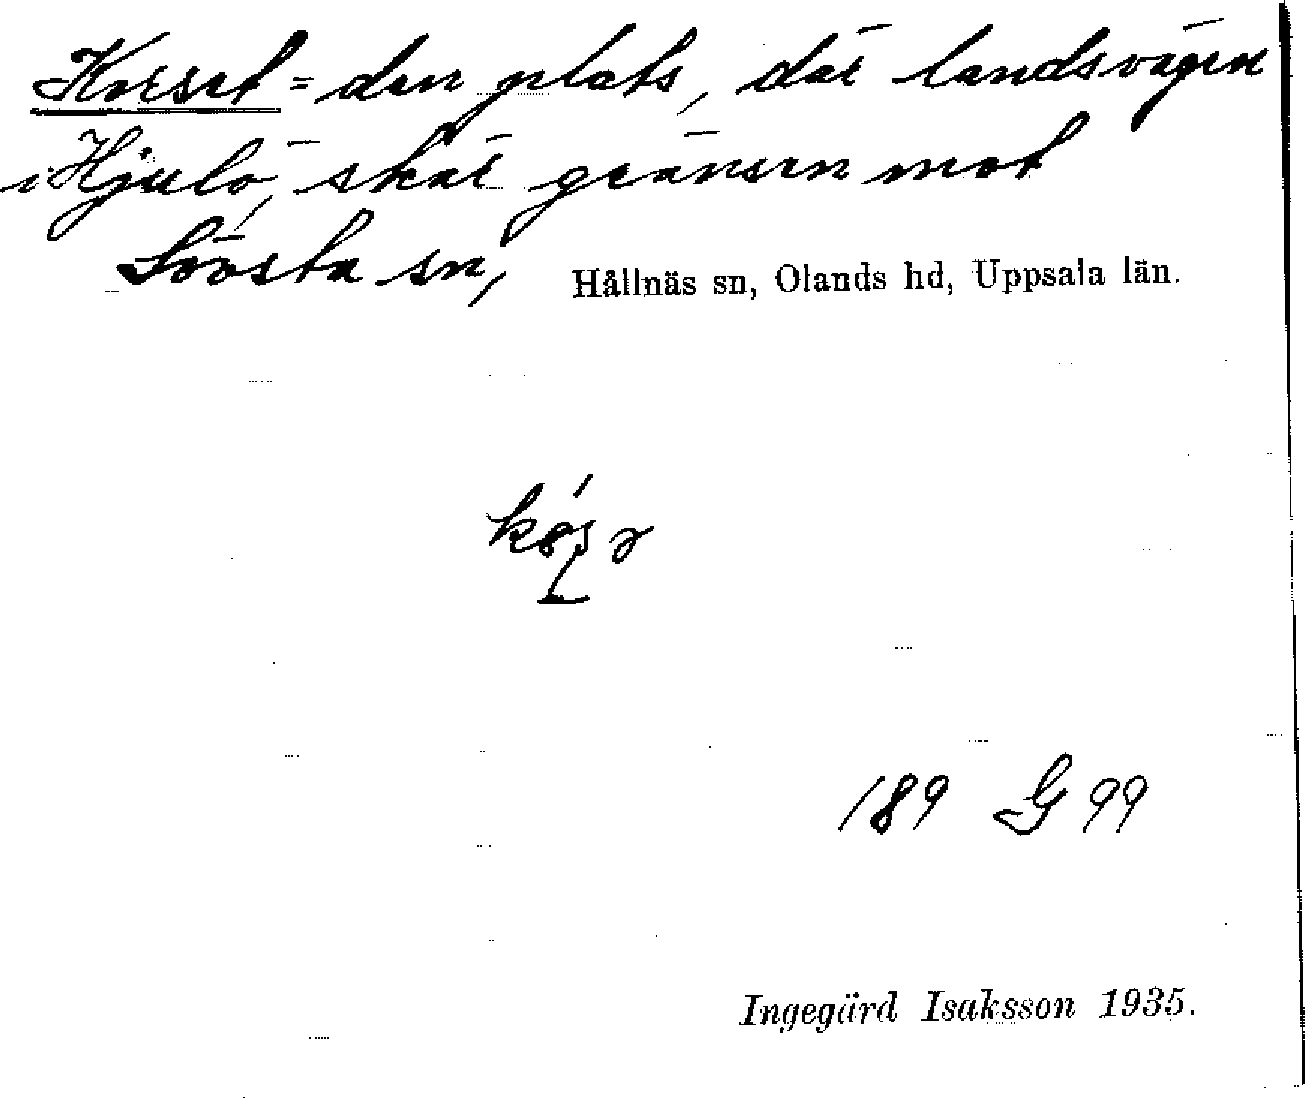 Korset = den plats, där landsvägen
i Hjulö, skär gränsen mot
Lövsta sn,
Hållnäs sn, Olands hd, Uppsala län.
189 G 99
Ingegärd Isaksson 1935.